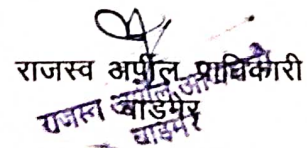 राजस्व अपील प्राधिकारी
बाडमेर
राजस्व अपील
बाडमेर